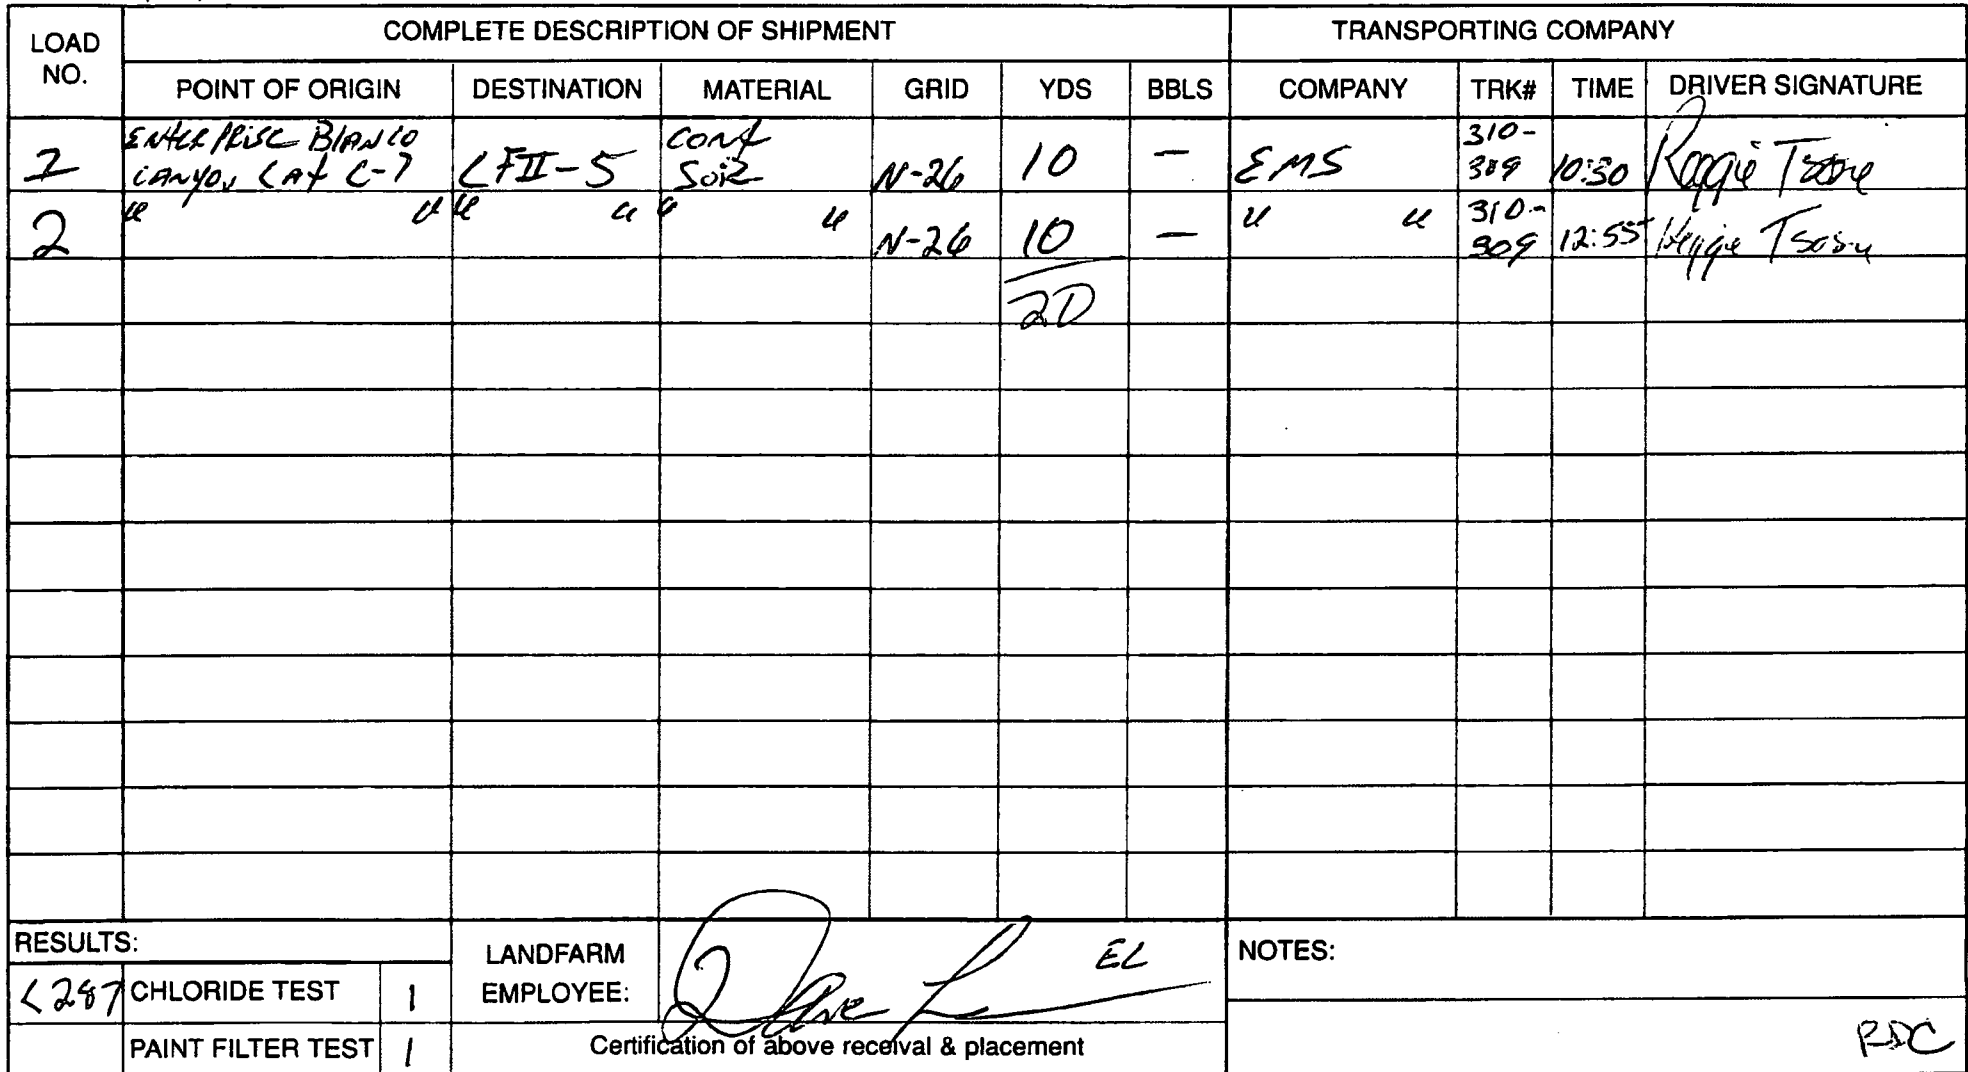 LOAD NO.
COMPLETE DESCRIPTION OF SHIPMENT
TRANSPORTING COMPANY
POINT OF ORIGIN DESTINATION MATERIAL GRID YDS BBLS COMPANY TRK# TIME DRIVER SIGNATURE
1 ENTERPRISE BLANCO CANYON LAT C-7 LFII-5 CONT SOIL N-26 10 — EMS 310-309 10:30 Reggie Tsosie
2 " " " " " " N-26 10 — " " 310-309 12:55 Reggie Tsosie
20
RESULTS:
<287 CHLORIDE TEST 1
PAINT FILTER TEST 1
LANDFARM EMPLOYEE: EL
Certification of above receival & placement
NOTES:
RDC